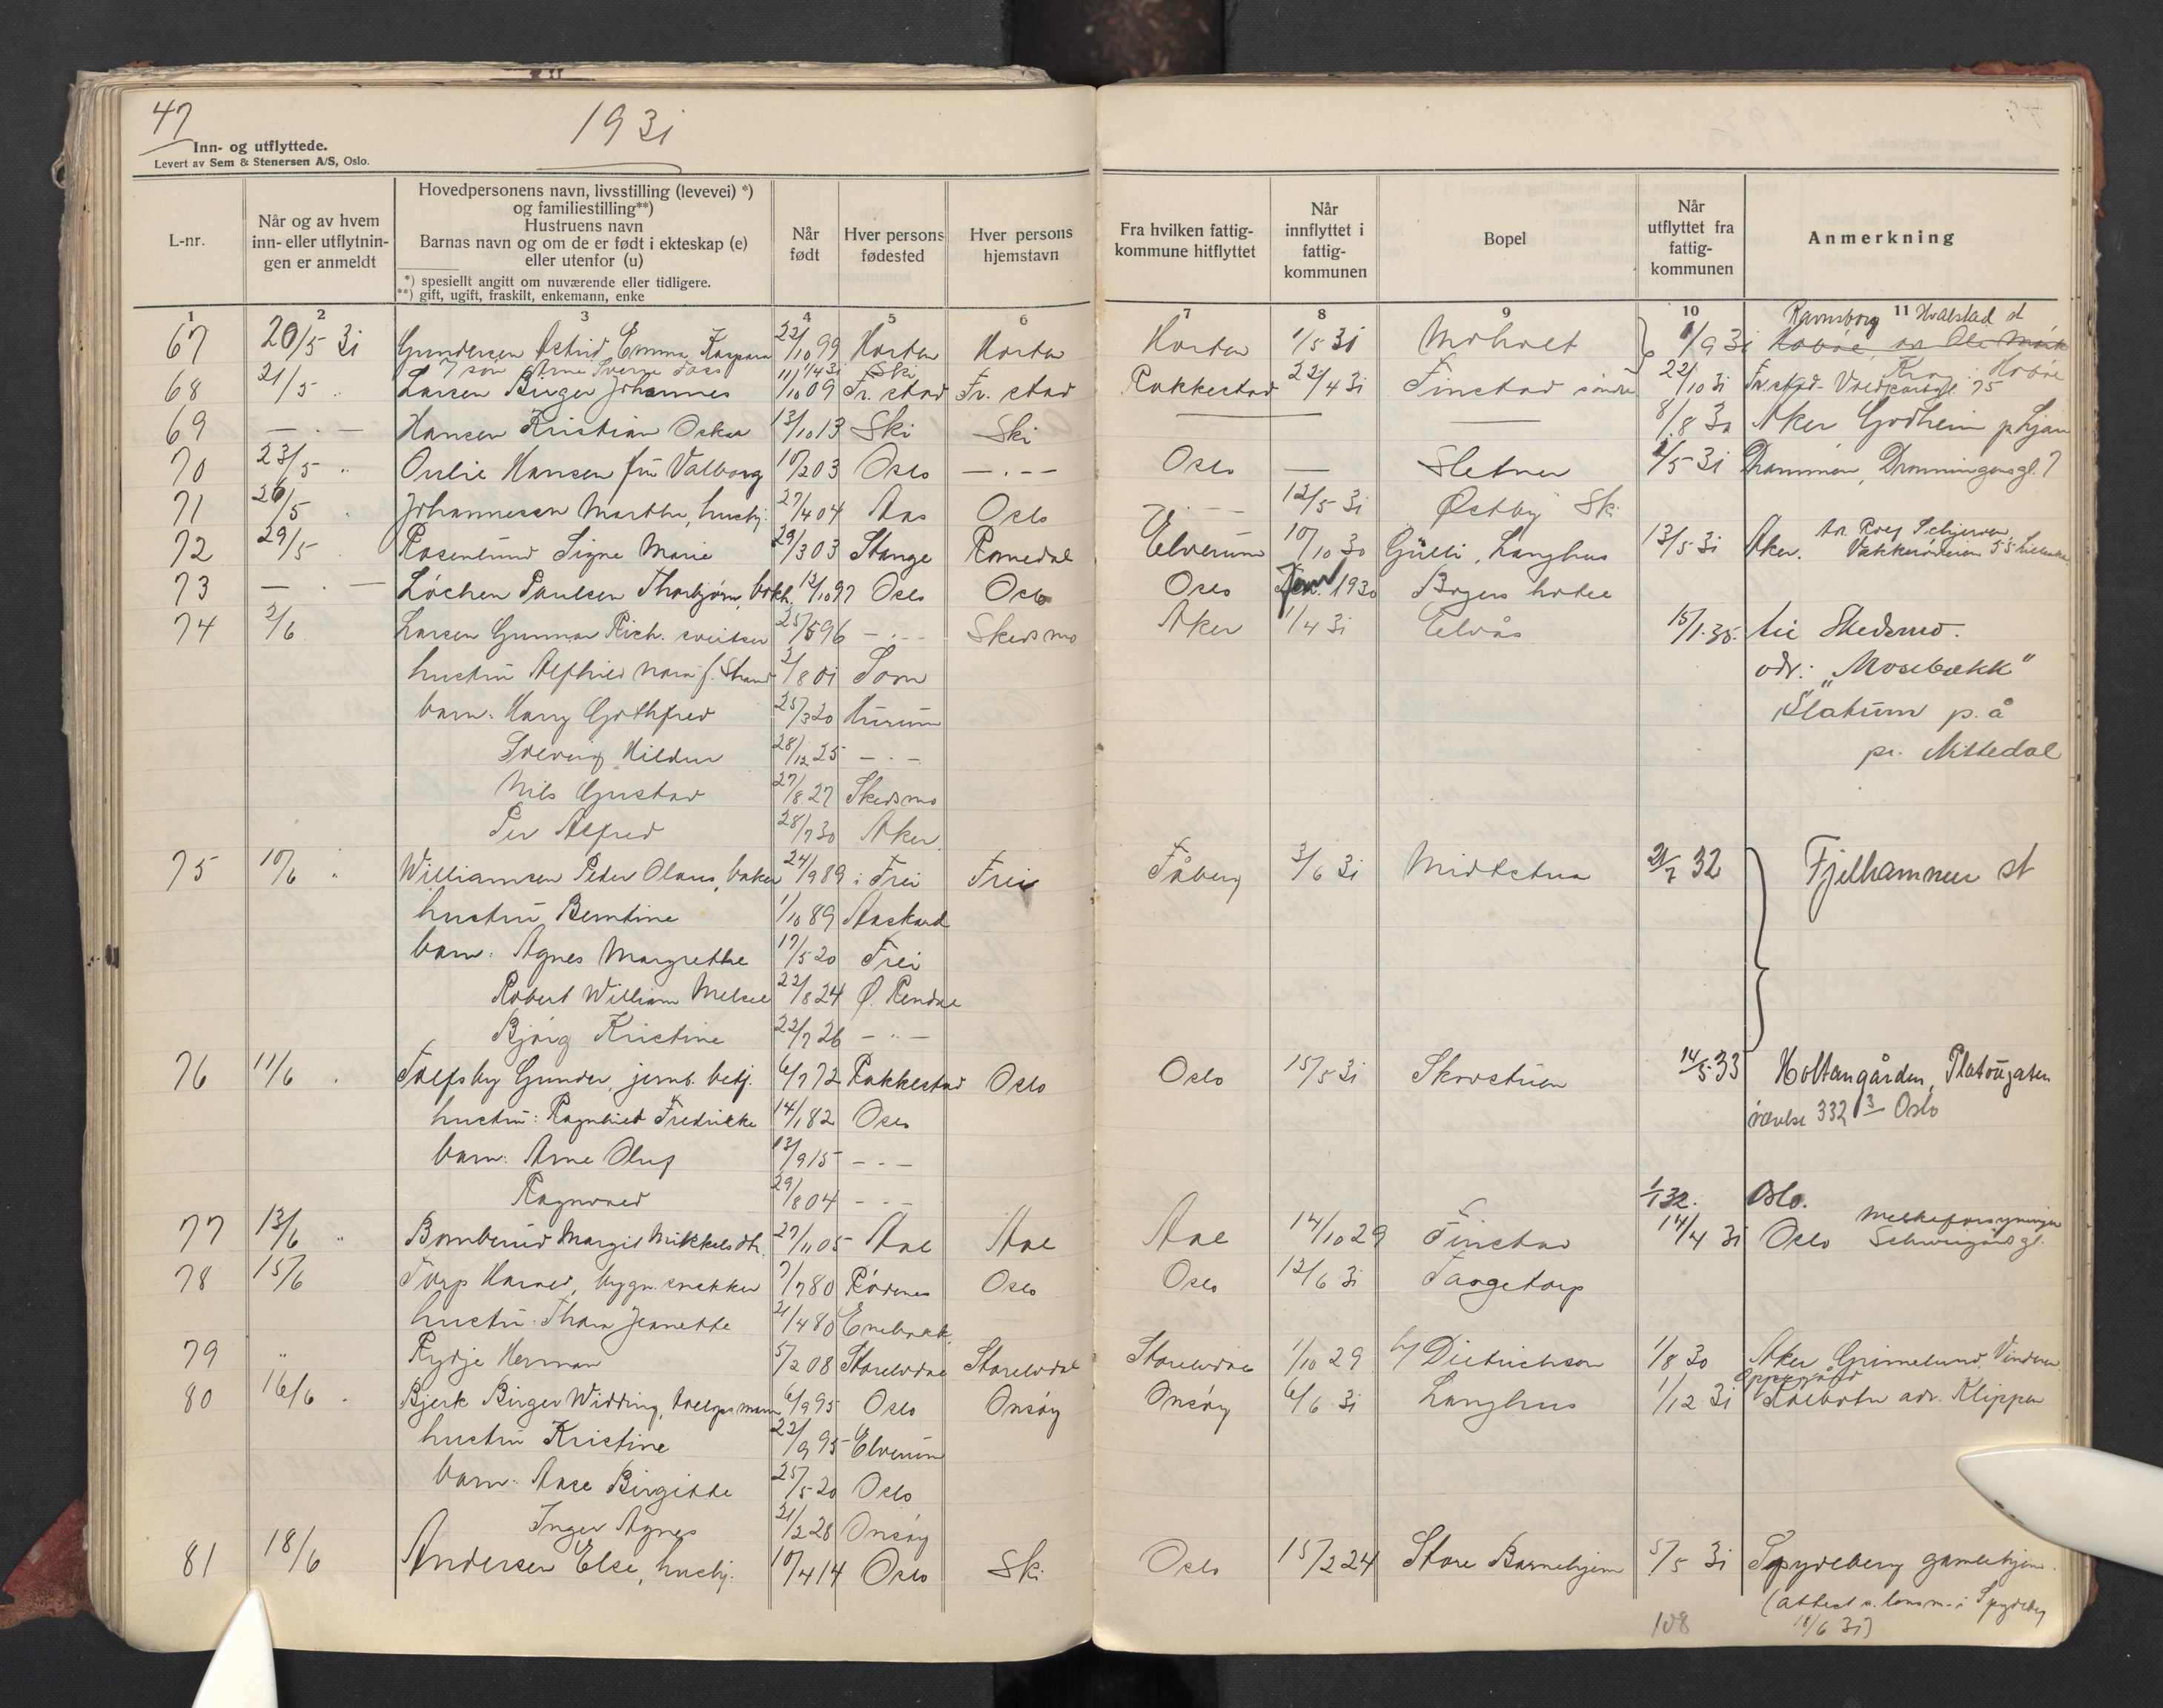 47
1931
Inn- og utflyttede.
Levert av Sem & Stenersen A/S, Oslo.
L-nr.
Når og av hvem inn- eller utflytnin-gen er anmeldt
Hovedpersonens navn, livsstilling (levevei) *)
og familiestilling**)
Hustruens navn
Barnas navn og om de er født i ekteskap (e)
eller utenfor (u)
*) spesiellt angitt om nuværende eller tidligere.
**) gift, ugift, fraskilt, enkemann, enke
Når født
Hver persons fødested
Hver persons hjemstavn
Fra hvilken fattig-kommune hitflyttet
Når innflyttet i fattig-kommunen
Bopel
Når utflyttet fra fattig-kommunen
Anmerkning
1 2 3 4 5 6 7 8 9 10 11
Ravnsborg Hvalstad st
67 20/5 31 Gundersen Astrid Emma Kaspara 22/10 99 Horten Horten Horten 1/5 31 Moholt 1/9 31 Hobøl
søn Arne Sverre 11/4 31 Ski
68 21/5 " Larsen Birger Johannes 11/10 09 Fr. stad Fr. stad Rakkestad 22/4 31 Finstad søndre 22/10 31 Fr.stad
69 — " — Hansen Kristian Oskar 13/10 13 Ski Ski — — 8/8 30 Aker Godheim p Ljan
70 23/5 " Oulie Hansen frü Valborg 10/2 03 Oslo — " — Oslo — Sletner 2/5 31 Drammen, Dronningensgl. 7
71 26/5 " Johannesen Martha, hushj. 27/4 04 Aas Oslo — " — 12/5 31 Østby Ski
72 29/5 " Rosenlund Signe Marie 29/3 03 Stange Romedal Elverum 10/10 30 Gülli, Langhus 13/5 31 Aker.
73 — " — Løchen Paulsen Thorbjørn, bokh. 12/10 97 Oslo Oslo Oslo Jan 1930 Bøgers hotel
74 2/6 Larsen Gunnar Rich. sveitser 25/5 96 — " — Skedsmo Aker 1/4 31 Elvås 15/1.35. til Skedsmo.
hustrü Alfhild Nora f. Strand 2/8 01 Son adr: "Mosebækk"
barn: Harry Gothfred 25/3 20 Hurum Slatum p. å
Solveig Hildur 28/12 25 — " — pr. Nittedal
Nils Gustav 27/8 27 Skedsmo
Per Alfred 28/7 30 Aker.
75 10/6 " Williamsen Peder Olaus, baker 24/9 89 i Frei Frei Fåberg 3/6 31 Midtstua 21/7 32 Fjelhammer st
hustrü Berntine 1/10 89 Aaskard
barn: Agnes Margrethe 17/5 20 Frei
Robert William Melsel 22/8 24 Ø. Rendal
Bjørg Kristine 22/7 26 — " —
76 11/6 " Tolfsby Gunder, jernb. betj. 6/7 72 Rakkestad Oslo Oslo 15/5 31 Skovstuen 14/5 33 Holtangården, Platoügaten
hustrü: Ragnhild Fredrikke 14/1 82 Oslo værelse 332 3 Oslo
barn: Arne Oluf 13/9 15 — " —
Ragnvald 29/8 04 — " — 1/1 32. Oslo.
77 13/6 " Bomberud Margit Mikkelsdtr. 27/11 05 Aal Aal Aal 14/10 29 Finstad 14/4 31 Oslo Melkeforsyningen Schweigårdsgl.
78 15/6 Torp Harald, bygn. snekker 7/7 80 Rødenes Oslo Oslo 12/6 31 Taagetorp
hustrü. Thora Jeanette 21/4 80 Enebakk.
79 " Rydje Herman 5/2 08 Storelvdal Storelvdal Storelvdal 1/10 29 h/ Dietrichson 1/8 30 Aker Grimelund, Vinderen.
Oppegård
80 16/6 " Bjerk Birger Widding, 6/9 95 Oslo Onsøy Onsøy 6/6 31 Langhus 1/12 31 Kolbotn adr. Klippen
hustrü Kristine 22/9 95 Elverum
barn: Aase Birgitte 25/5 20 Oslo
Inger Agnes 21/2 28 Onsøy
81 18/6 Andersen Else, hushj. 10/4 14 Oslo Ski Oslo 15/2 24 Store Barnehjem 5/5 31 Spydeberg gamlehjem.
(attest s. lensm. i Spydeberg
18/6 31)
108